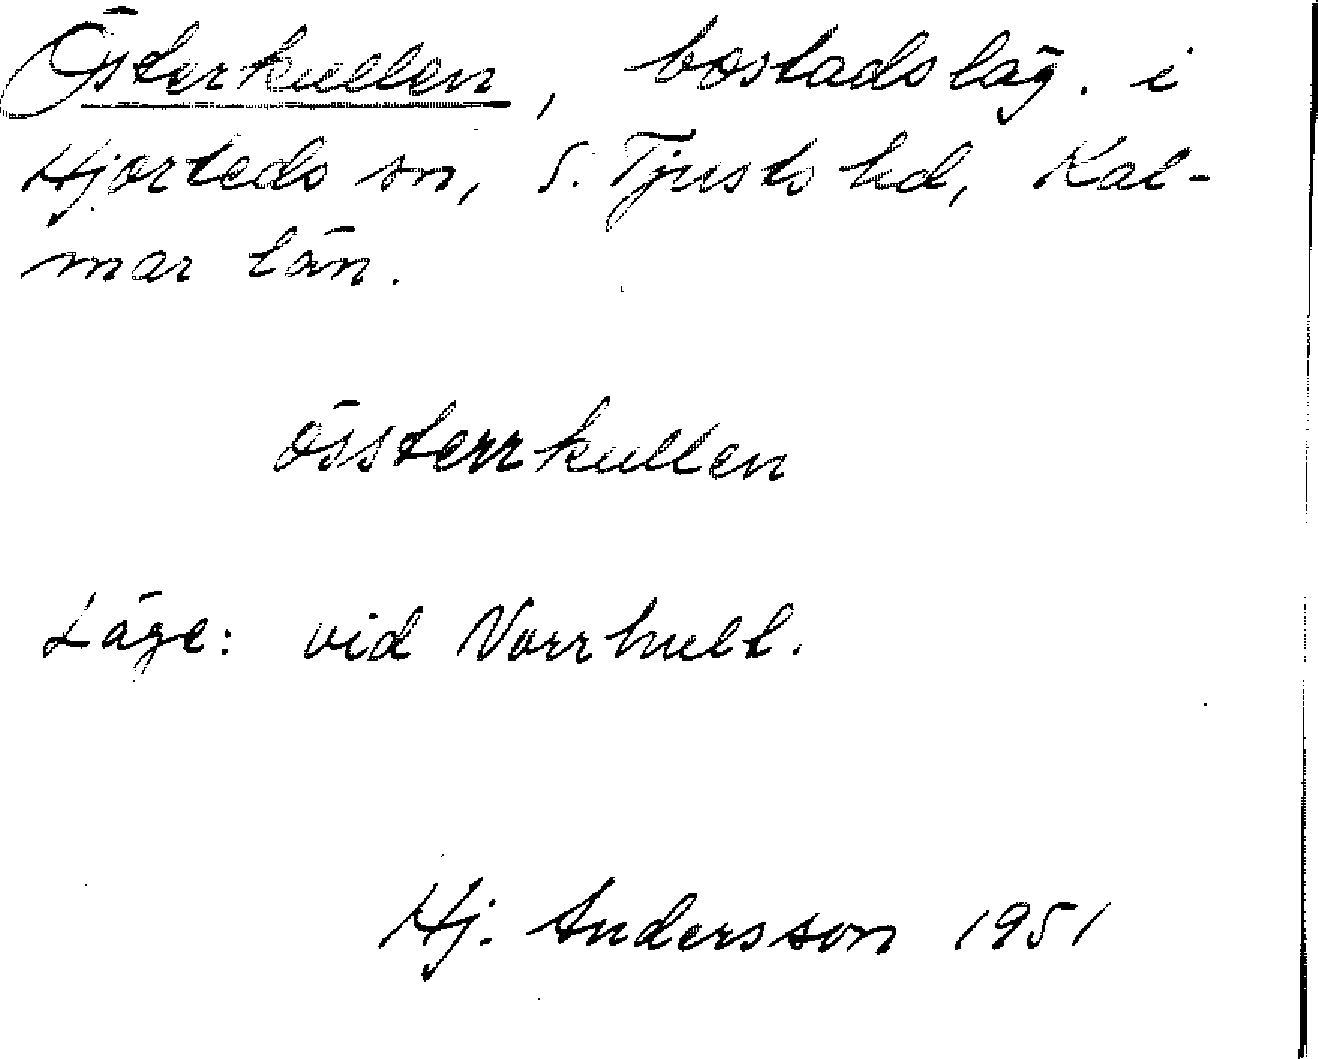 Österkullen, bostadsläg. i
Hjorteds sn, S. Tjusts hd, Kal-
mar län.
össterrkullen
Läge: vid Vorrhult.
Hj. Andersson 1951